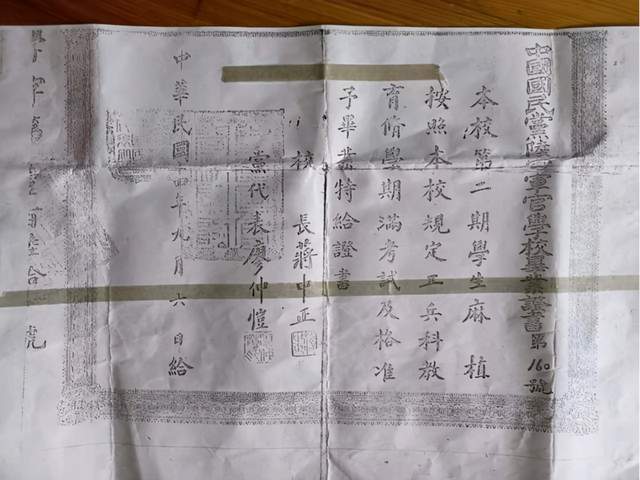 中國國民黨陸軍軍官學校畢業證書第160號
本校第二期學生麻植
按照本校規定工兵科教
育脩學期滿考試及格准
予畢業特給證書
校長蔣中正
黨代表廖仲愷
中華民國十四年九月六日給
號